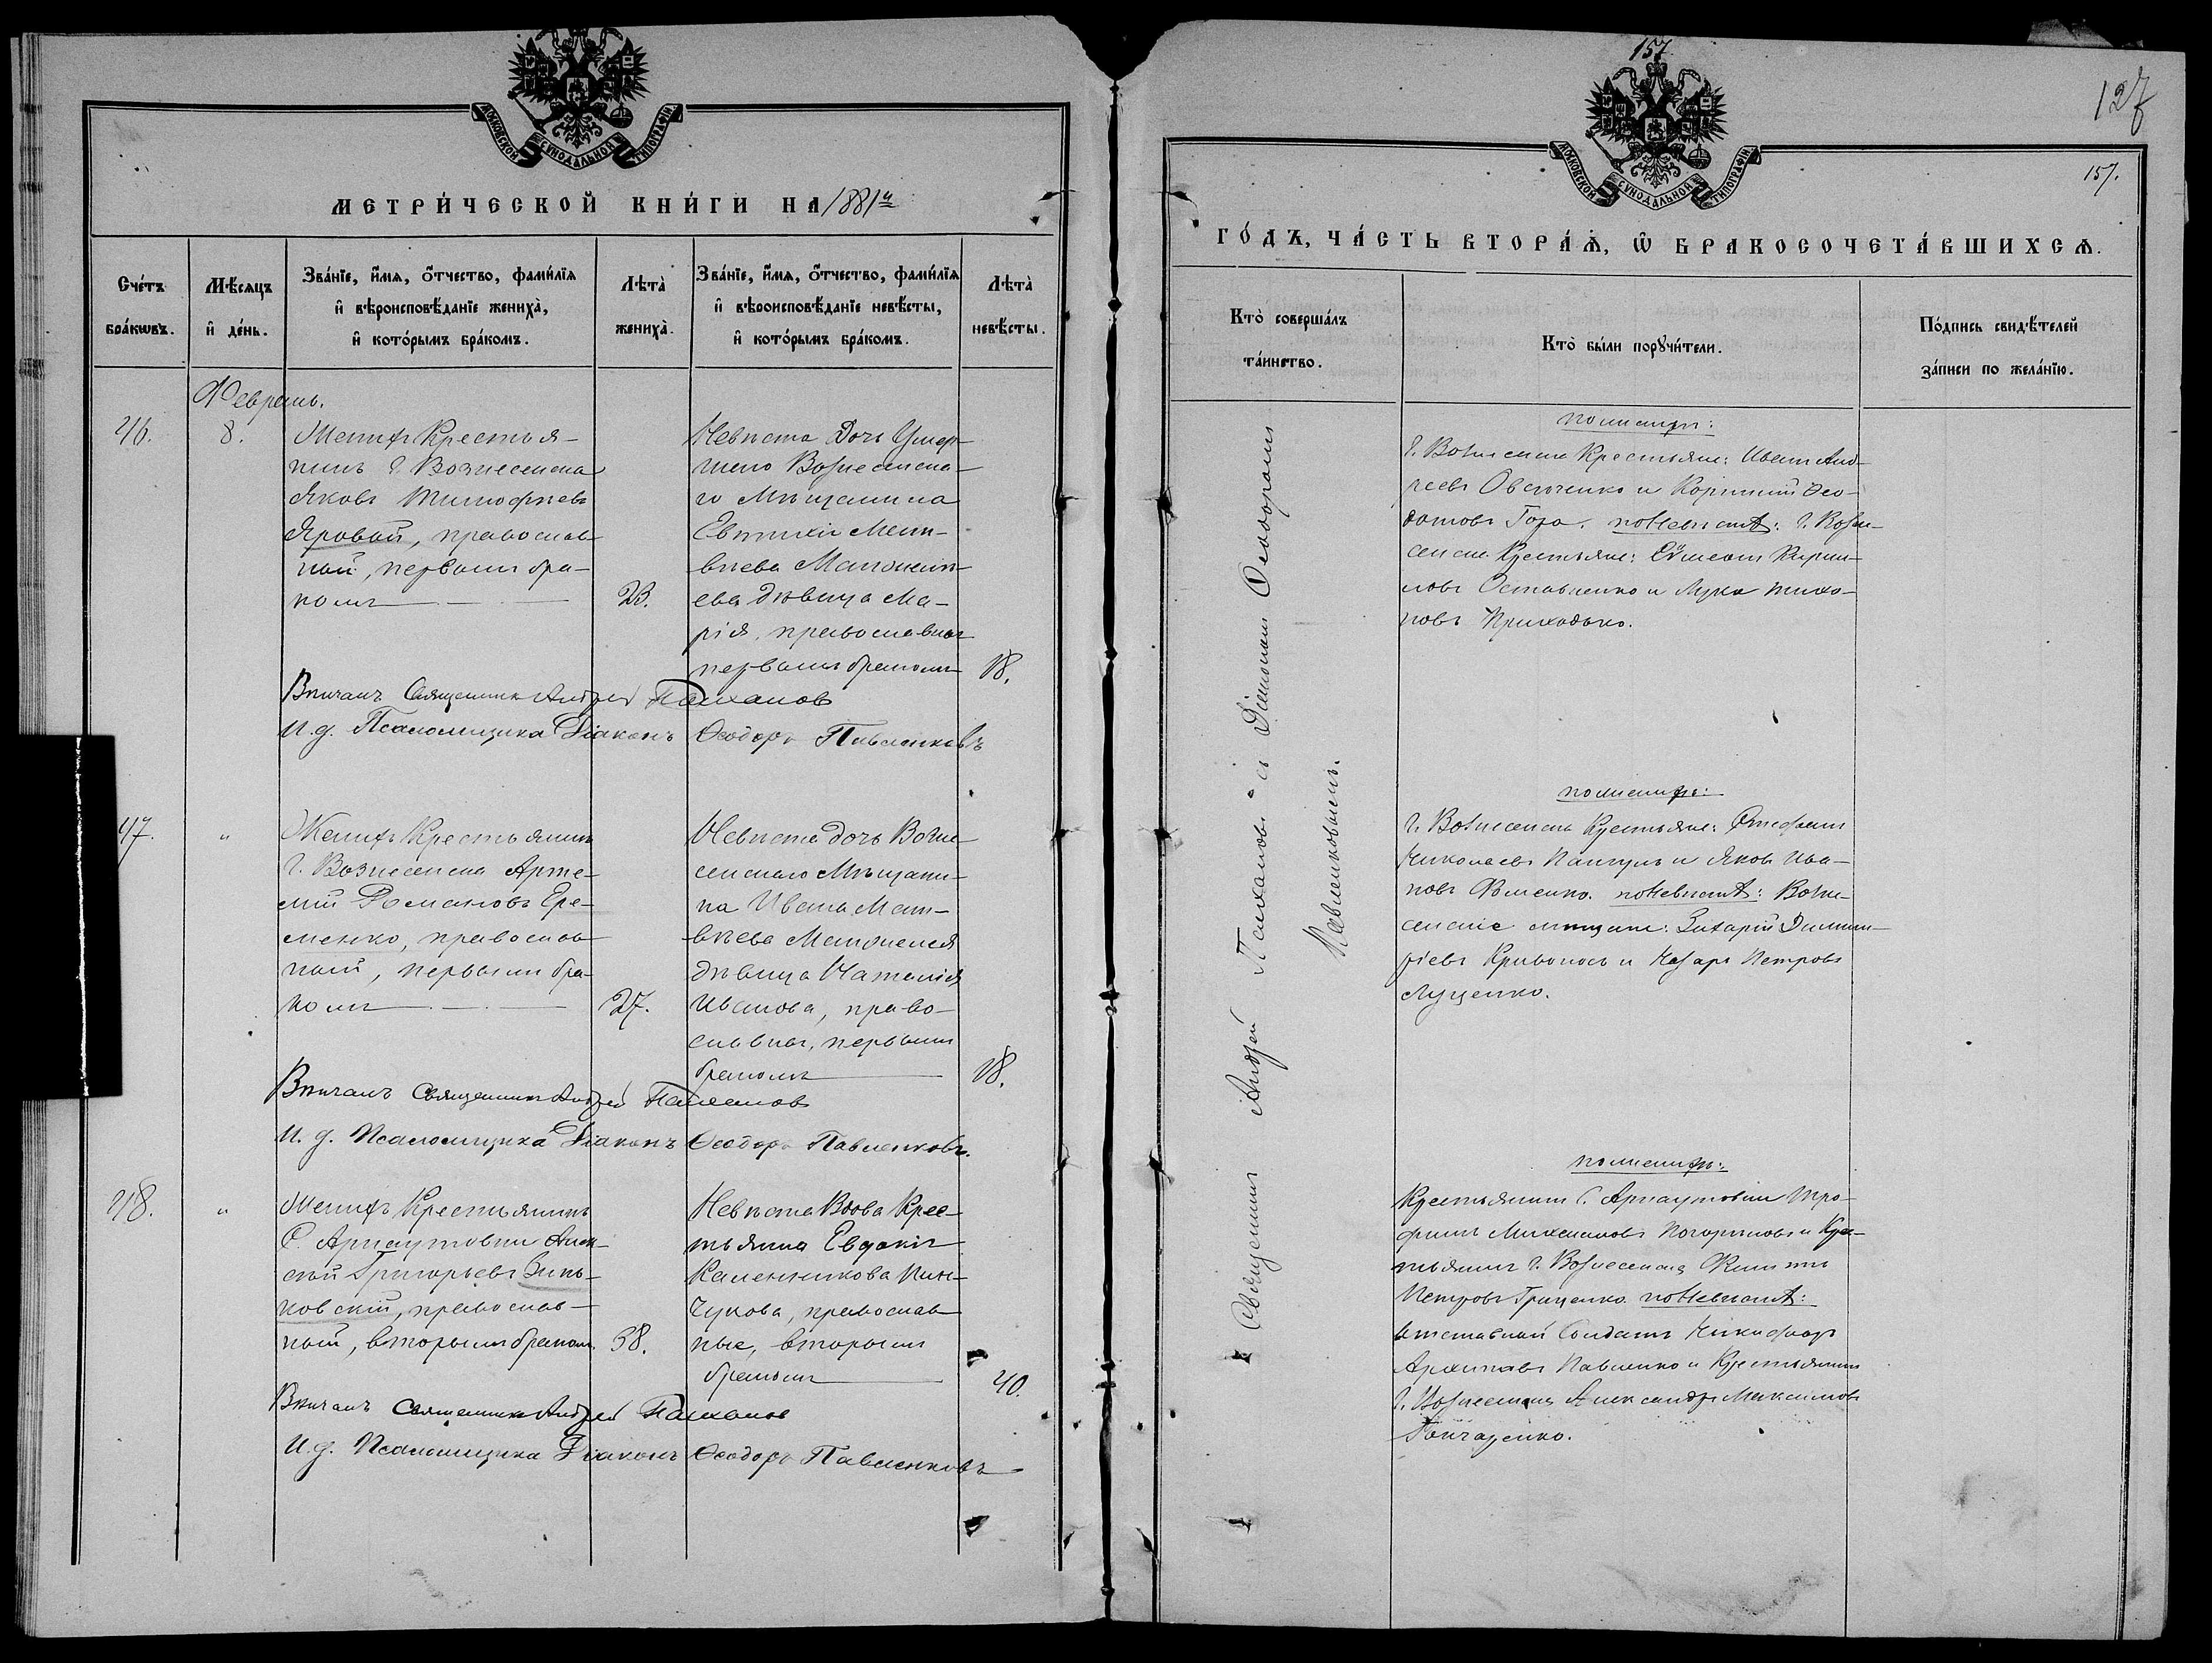 МОСКОВСКОЙ СѴНОДАЛЬНОЙ ТИПОГРАФІИ
МЕТРИ́ЧЕСКОЙ КНИ́ГИ НА 1881й
Сче́тъ бра́кѡвъ.
Мѣ́сяцъ и҆ де́нь.
Зва́нїе, и҆́мѧ, ѻ҆́тчество, фами́лїѧ
и҆ вѣроисповѣ́данїе жениха̀,
и҆ кото́рымъ бра́комъ.
Лѣта̀ жениха̀.
Зва́нїе, и҆́мѧ, ѻ҆́тчество, фами́лїѧ
и҆ вѣроисповѣ́данїе невѣ́сты,
и҆ кото́рымъ бра́комъ.
Лѣта̀ невѣ́сты.
Февраль.
46.
8.
Женихъ Крестья-
нинъ г. Вознесенска
Яковъ Тимофѣевъ
Яровой, православ-
ный, первымъ бра-
комъ
23.
Невѣста Дочь Умер-
шаго Вознесенска-
го Мѣщанина
Евтихія Мат-
вѣева
дѣвица Ма-
рія, православная
первымъ бракомъ
18.
Вѣнчалъ Священникъ Андрей Паиханов
И. д. Псаломщика Діаконъ Ѳеодоръ Павленковъ
47.
"
Женихъ Крестьянинъ
г. Вознесенска Арте-
мій Романовъ Ере-
менко, православ-
ный, первымъ бра-
комъ
27.
Невѣста дочь Возне-
сенскаго Мѣщани-
на Ивана Мат-
вѣева
дѣвица Наталія
Иванова, право-
славная, первымъ
бракомъ
18.
Вѣнчалъ Священникъ Андрей Паиханов
И. д. Псаломщика Діаконъ Ѳеодоръ Павленковъ.
48.
"
Женихъ Крестьянинъ
С. Арнаутовки Алек-
сѣй Григорьевъ Зинь-
ковскій, православ-
ный, вторымъ бракомъ.
38.
Невѣста Вдова Крес-
тьянка Евдокія
Каленникова Пин-
чукова, православ-
ные, вторымъ
бракомъ
40.
Вѣнчалъ Священникъ Андрей Паиханов
И. д. Псаломщика Діаконъ Ѳеодоръ Павленковъ
157
127
157.
МОСКОВСКОЙ СѴНОДАЛЬНОЙ ТИПОГРАФІИ
ГО́ДЪ, ЧА́СТЬ ВТОРА́Ѧ, Ѽ БРАКОСОЧЕТА́ВШИХСѦ.
Кто̀ соверша́лъ та́инство.
Кто̀ бы́ли порꙋчи́тели.
По́дпись свидѣ́телей за́писи по жела́нїю.
Священникъ Андрей Паихановъ съ Діакономъ Ѳеодоромъ
Павленковымъ.
по женихѣ:
г. Вознесенска Крестьяне: Иванъ Анд-
реевъ Овсюченко и Корнилій Ѳео-
дотовъ Гора. по невѣстѣ: г. Возне-
сенска Крестьяне: Сѵмеонъ Кирил-
ловъ Оставненко и Лука Тихо-
новъ Приходько.
по женихѣ:
г. Вознесенска Крестьяне: Стефанъ
Николаевъ Пангулъ и Яковъ Ива-
новъ Фоменко. по невѣстѣ: Возне-
сенскіе мѣщане: Захарій Димит-
ріевъ Кривоносъ и Назаръ Петровъ
Луценко.
по женихѣ:
Крестьянинъ С. Арнаутовки Тро-
фимъ Михайловъ Погорѣловъ и Крес-
тьянинъ г. Вознесенска Филиппъ
Петровъ Гриценко. по невѣстѣ:
отставной Солдатъ Никифоръ
Архиповъ Павленко и Крестьянинъ
г. Вознесенска Александръ Максимовъ
Гончаренко.